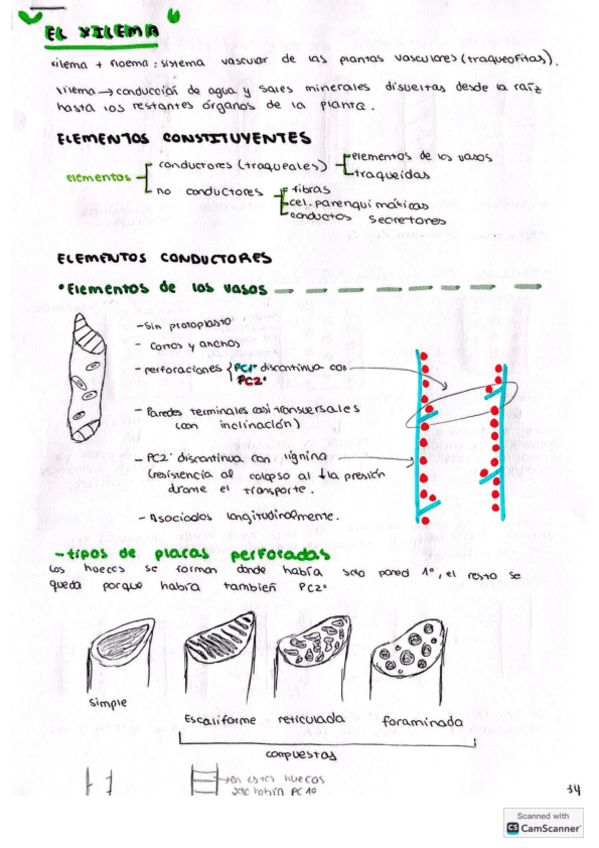 EL XILEMA
xilema + floema : sistema vascular de las plantas vasculares (traqueofitas).
Xilema → conducción de agua y sales minerales disueltas desde la raíz
hasta los restantes órganos de la planta.
ELEMENTOS CONSTITUYENTES
elementos
conductores (traqueales)
elementos de los vasos
traqueidas
no conductores
fibras
cel. parenquimáticas
conductos secretores
ELEMENTOS CONDUCTORES
• Elementos de los vasos
- Sin protoplasto
- Cortos y anchos
- perforaciones { PC1ª discontinua con
PC2ª
- Paredes terminales casi transversales
(con inclinación)
- PC2ª discontinua con lignina
(resistencia al colapso al ↓ la presión
durante el transporte.
- Asociados longitudinalmente.
- tipos de placas perforadas
Los huecos se forman donde había solo pared 1ª, el resto se
queda porque había también PC2ª
Simple
Escaliforme
reticulada
foraminada
compuestas
→ en estos huecos
solo había PC 1ª
34
Scanned with
CS CamScanner